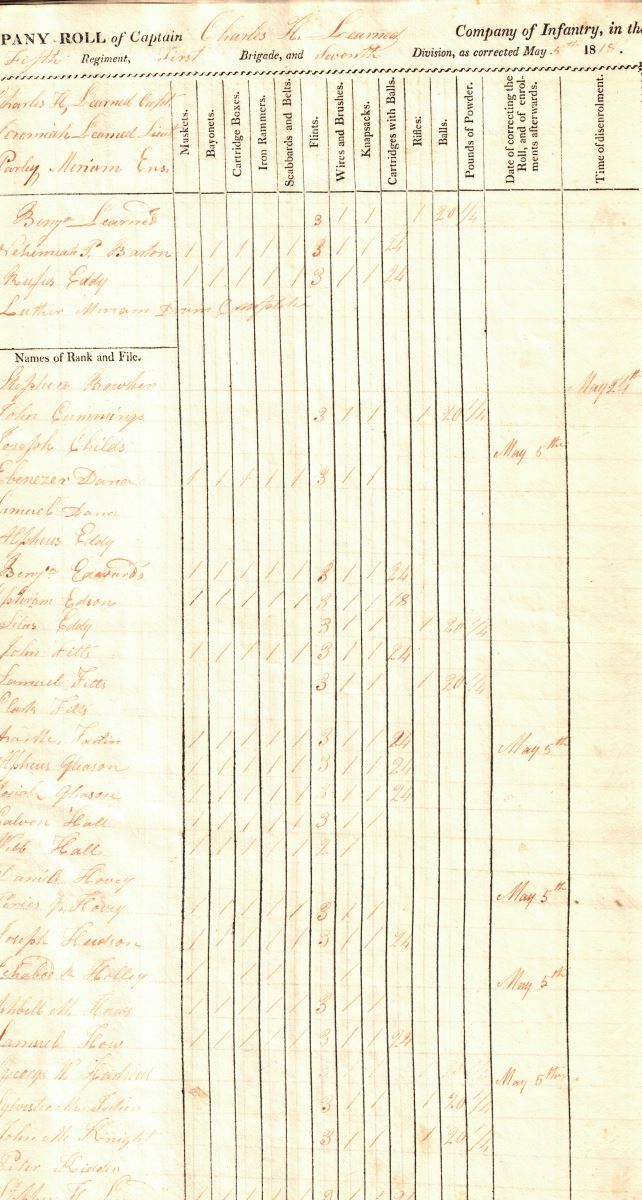 PANY ROLL of Captain Charles H. Learned Company of Infantry, in the
Fifth Regiment, First Brigade, and Seventh Division, as corrected May 5th 1818.
Charles H, Learned Captn
Jeremiah Learned Lieut
Parley Miriam Ens.
Muskets.
Bayonets.
Cartridge Boxes.
Iron Rammers.
Scabbards and Belts.
Flints.
Wires and Brushes.
Knapsacks.
Cartridges with Balls.
Rifles.
Balls.
Pounds of Powder.
Date of correcting the Roll, and of enrolments afterwards.
Time of disenrolment.
Benja Learned 3 1 1 1 20 1/4
Nehemiah P. Barton 1 1 1 1 1 3 1 1 24
Rufus Eddy 1 1 1 1 1 3 1 1 24
Luther Miriam Drum Complete
Names of Rank and File.
Stephen Bowhen May 24th
John Cummings 3 1 1 1 20 1/4
Joseph Childs May 5th
Ebenezer Dana 1 1 1 1 1 3 1 1
Samuel Dana
Alpheus Eddy
Benja Edwards 1 1 1 1 1 3 1 1 24
Ephraim Edson 1 1 1 1 1 3 1 1 18
Silas Eddy 3 1 1 1 20 1/4
John Fitts 1 1 1 1 1 3 1 1 24
Samuel Fitts 3 1 1 1 20 1/4
Clark Fitts
1 1 1 1 1 3 1 1 24 May 5th
Alpheus Gleason 1 1 1 1 1 3 1 1 24
Josiah Gleason 1 1 1 1 1 3 1 1 24
Galven Hall 1 1 1 1 1 3 1 1
Webb Hall 1 1 1 1 1 2 1
Daniel Hovey
Hovey 1 1 1 1 1 3 1 1 May 5th
Joseph Hudson 1 1 1 1 1 3 1 1 24
May 5th
1 1 1 1 1 3 1 1
Samuel How 1 1 1 1 1 3 1 1
George May 5th
Sylvester M. 3 1 1 1 20 1/4
John M. Knight 3 1 1 1 20 1/4
Peter Kidder